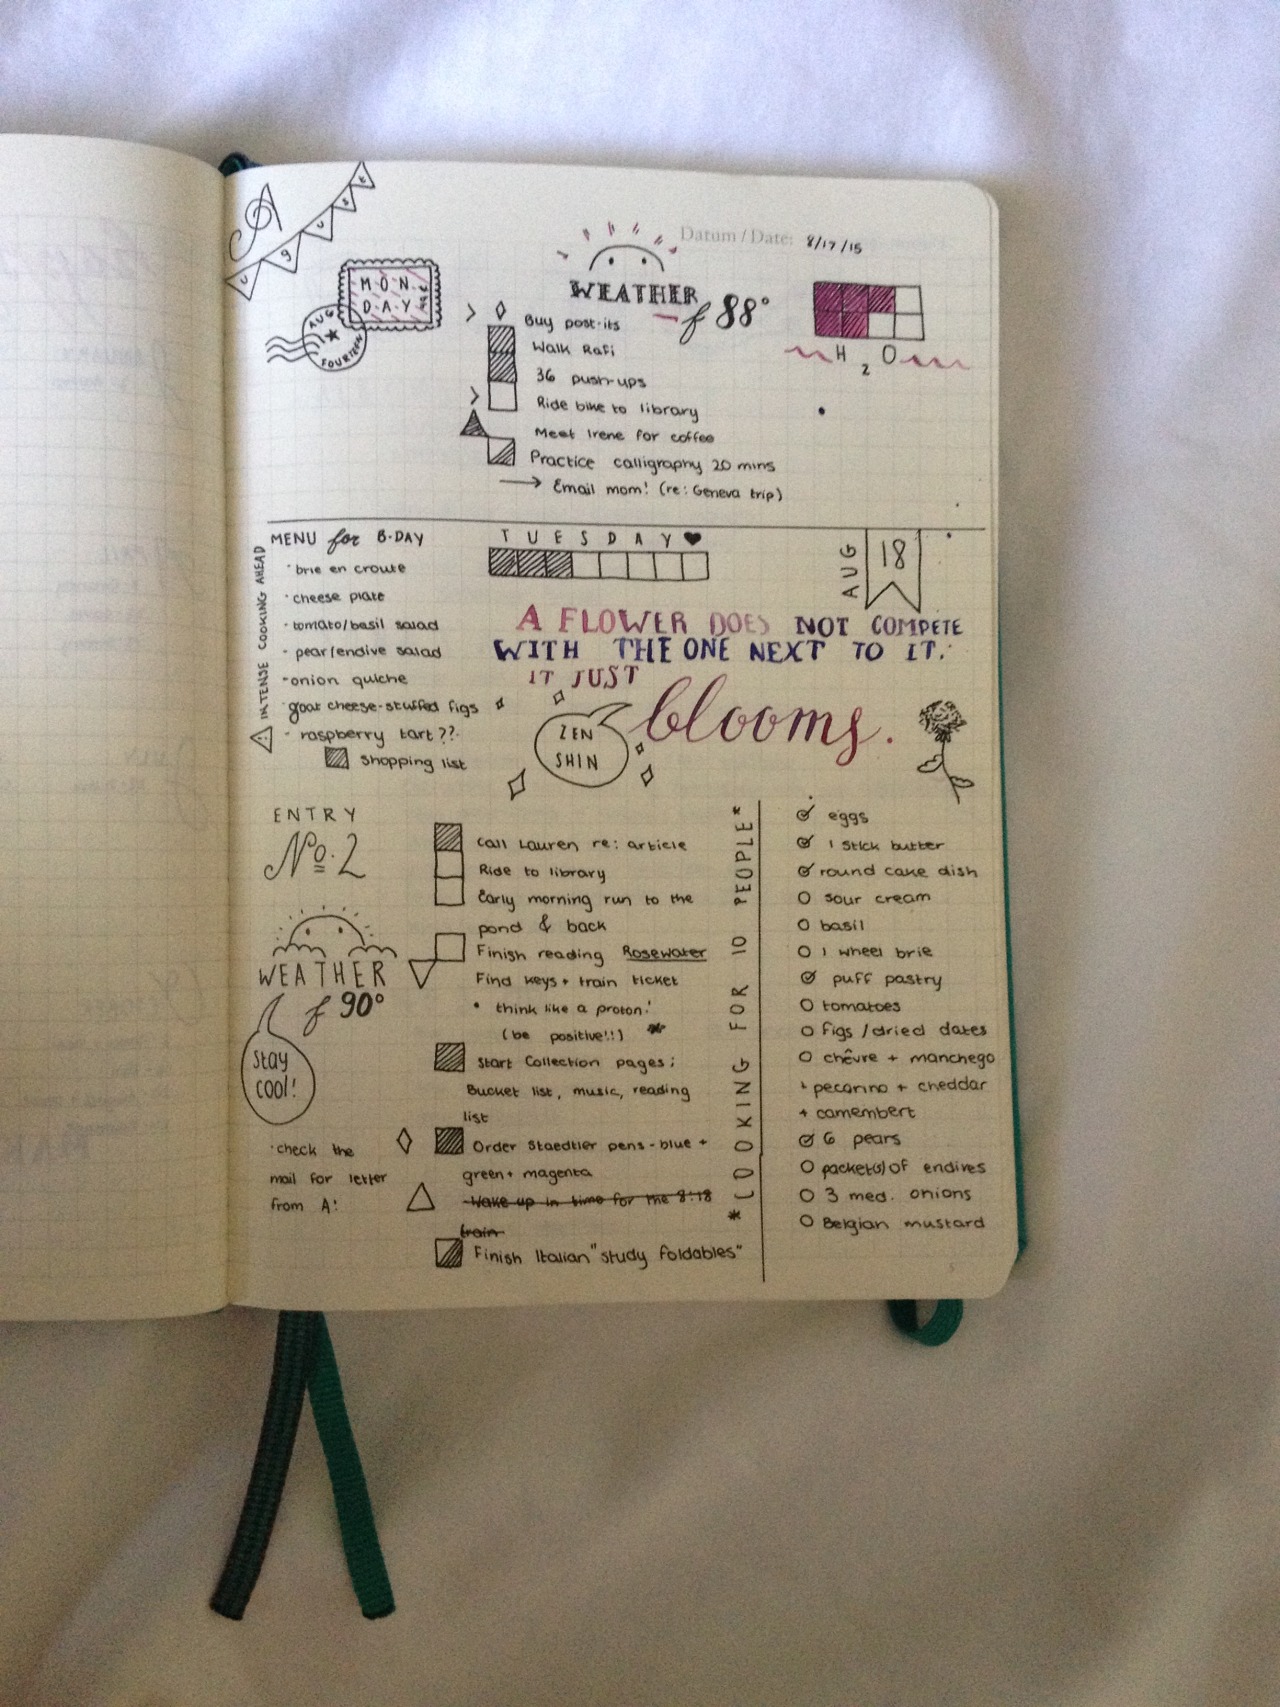 August
Datum / Date: 8/17/15
MONDAY
AUG
FOURTEEN
WEATHER
f 88°
H2O
> Buy post-its
Walk Rafi
36 push-ups
> Ride bike to library
Meet Irene for coffee
Practice calligraphy 20 mins
→ Email mom! (re: Geneva trip)
MENU for B-DAY
· brie en croute
· cheese plate
· tomato/basil salad
· pear/endive salad
· onion quiche
· goat cheese-stuffed figs
· raspberry tart??
Shopping list
INTENSE COOKING AHEAD
TUESDAY ♥
AUG
18
A FLOWER DOES NOT COMPETE
WITH THE ONE NEXT TO IT.
IT JUST
blooms.
ZEN
SHIN
ENTRY
No. 2
WEATHER
f 90°
Stay
cool!
· check the
mail for letter
from A!
Call Lauren re: article
Ride to library
Early morning run to the
pond & back
Finish reading Rosewater
Find keys + train ticket
* think like a proton!
(be positive!!)
Start Collection pages:
Bucket list, music, reading
list
Order Staedtler pens - blue +
green + magenta
Wake up in time for the 8:18
train
Finish Italian "study foldables"
*COOKING FOR 10 PEOPLE*
eggs
1 stick butter
round cake dish
sour cream
basil
1 wheel brie
puff pastry
tomatoes
figs / dried dates
chêvre + manchego
+ pecorino + cheddar
+ camembert
6 pears
packet(s) of endives
3 med. onions
Belgian mustard
5